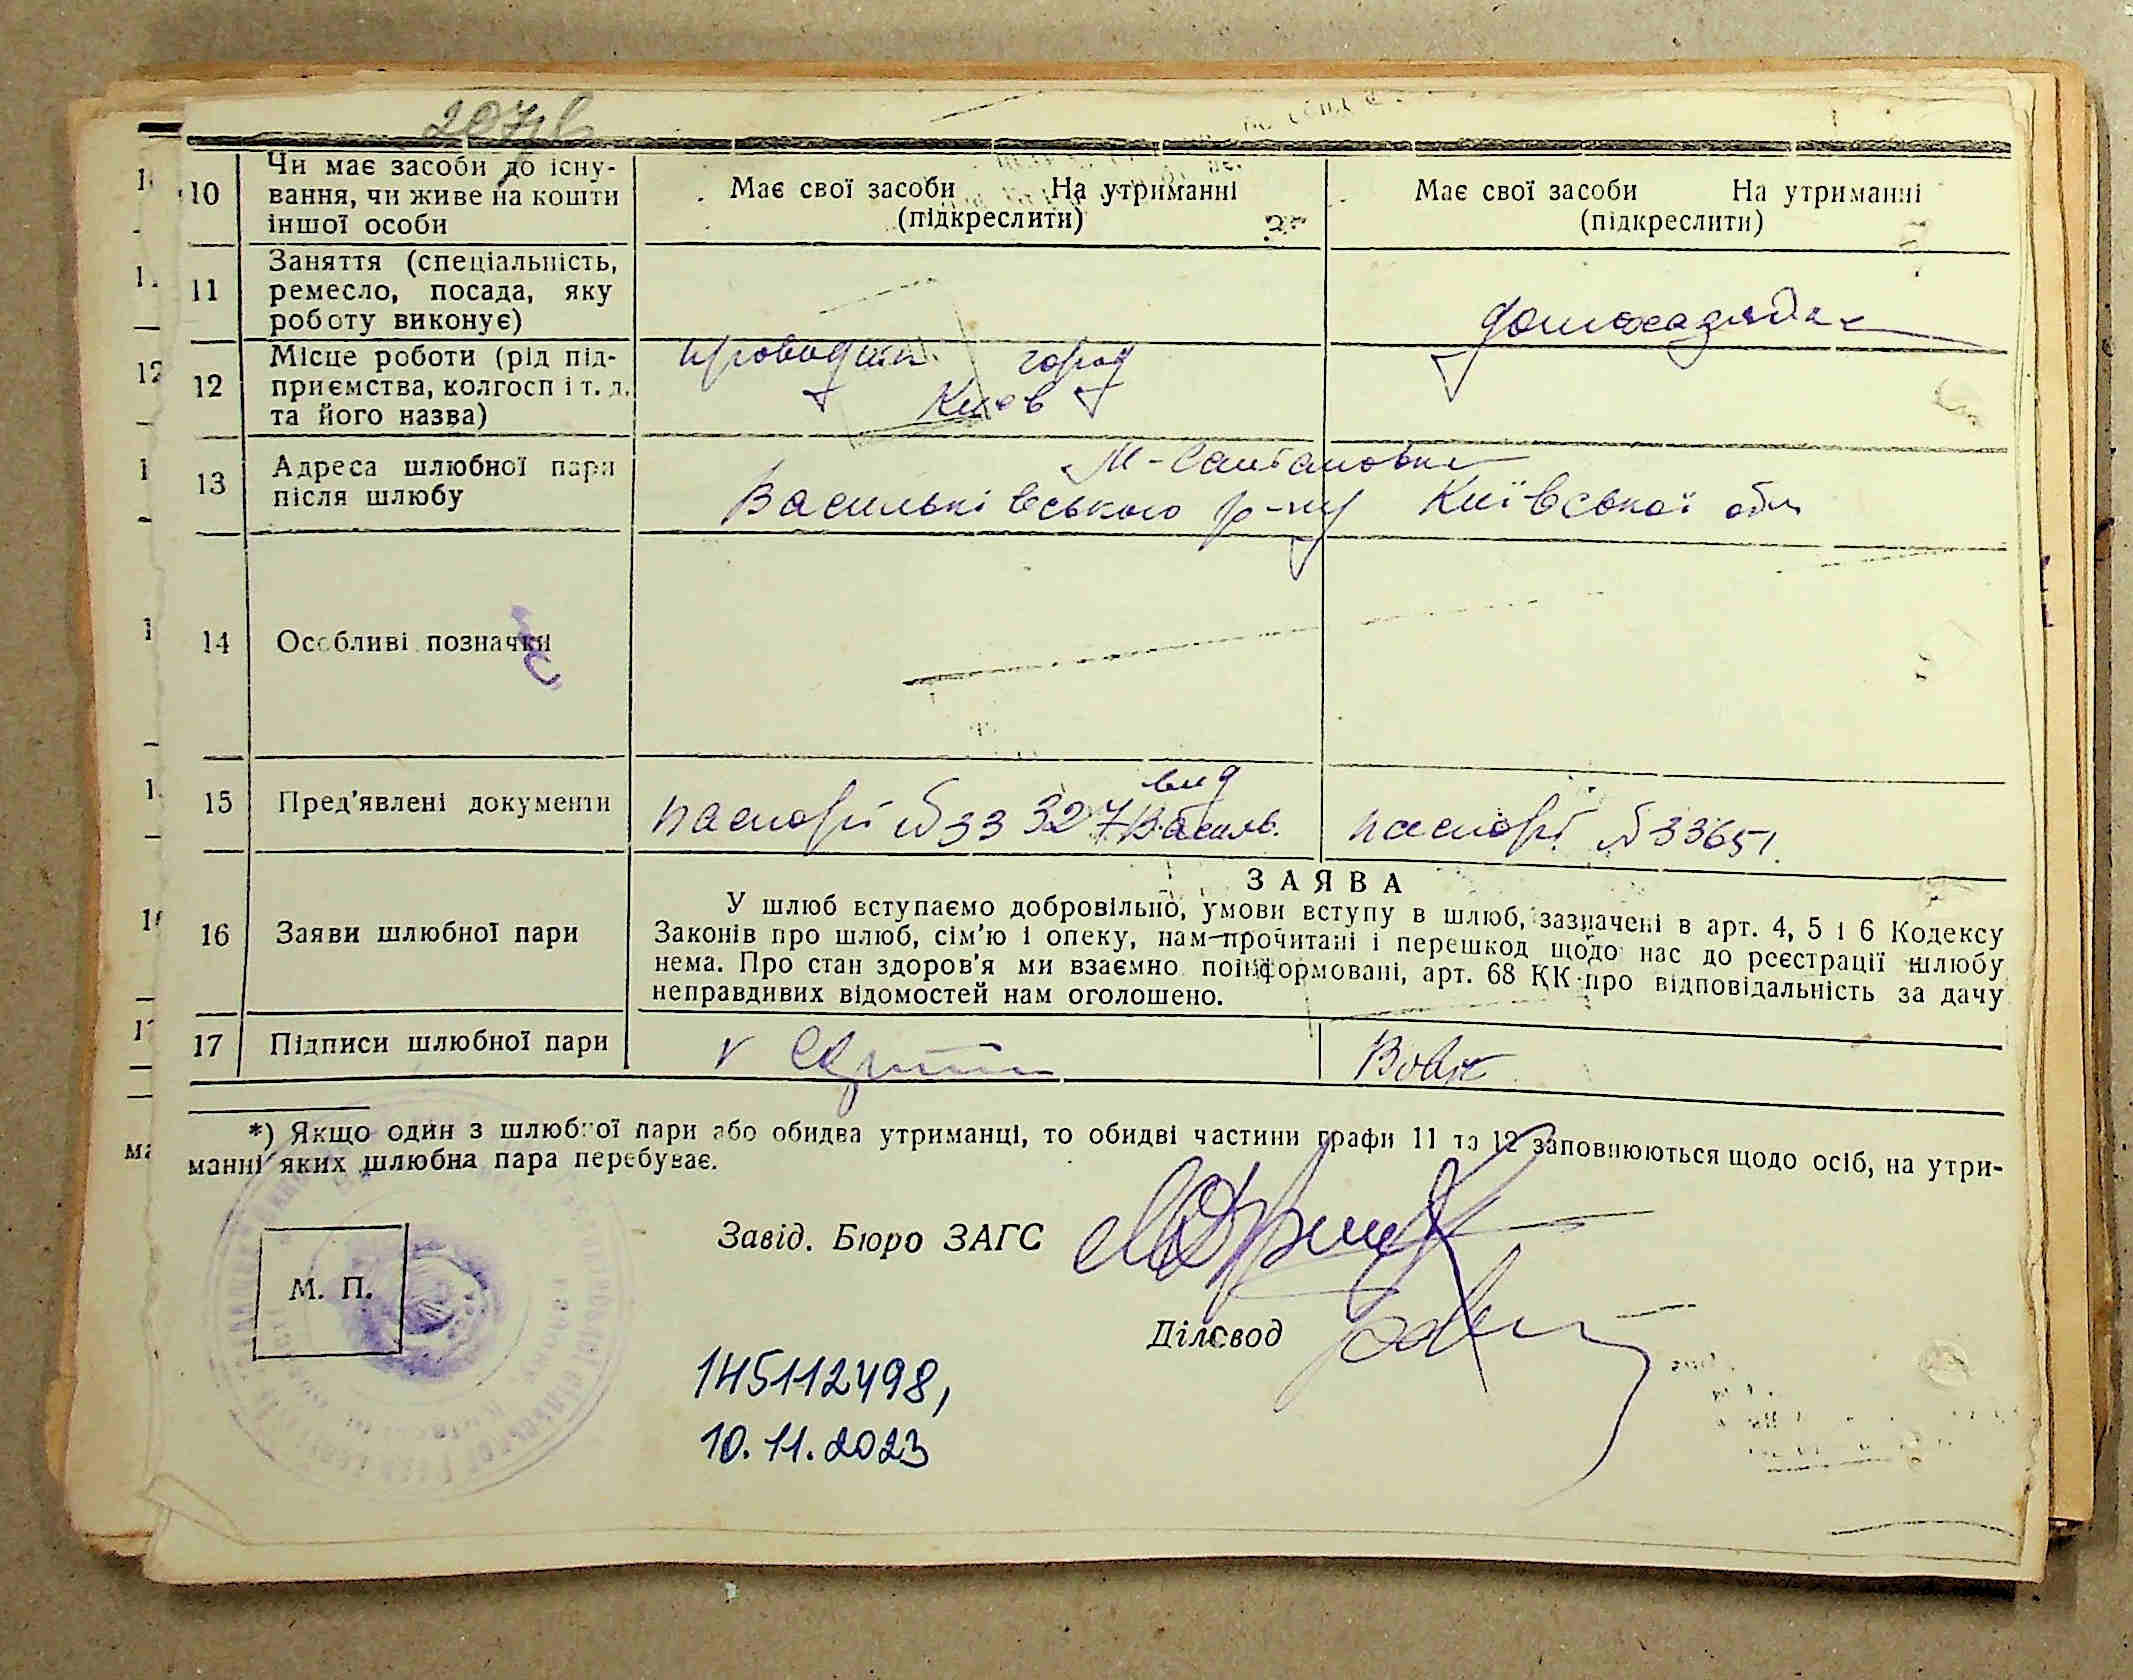 10
Чи має засоби до існу-
вання, чи живе на кошти
іншої особи
Має свої засоби На утриманні
(підкреслити)
Має свої засоби На утриманні
(підкреслити)
11
Заняття (спеціальність,
ремесло, посада, яку
роботу виконує)
домохазяйка
12
Місце роботи (рід під-
приємства, колгосп і т. д.
та його назва)
проводник город
Киев
13
Адреса шлюбної пари
після шлюбу
М-Салтановка
Васильківського р-ну Київської обл
14
Особливі позначки
15
Пред'явлені документи
вид
паспорт №33 327 Василь.
паспорт №33651.
16
Заяви шлюбної пари
ЗАЯВА
У шлюб вступаємо добровільно, умови вступу в шлюб, зазначені в арт. 4, 5 і 6 Кодексу
Законів про шлюб, сім'ю і опеку, нам прочитані і перешкод щодо нас до реєстрації шлюбу
нема. Про стан здоров'я ми взаємно поінформовані, арт. 68 КК про відповідальність за дачу
неправдивих відомостей нам оголошено.
17
Підписи шлюбної пари
Вовк
*) Якщо один з шлюбної пари або обидва утриманці, то обидві частини графи 11 та 12 заповнюються щодо осіб, на утри-
манні яких шлюбна пара перебуває.
Завід. Бюро ЗАГС
М. П.
Діловод
145112498,
10.11.2023